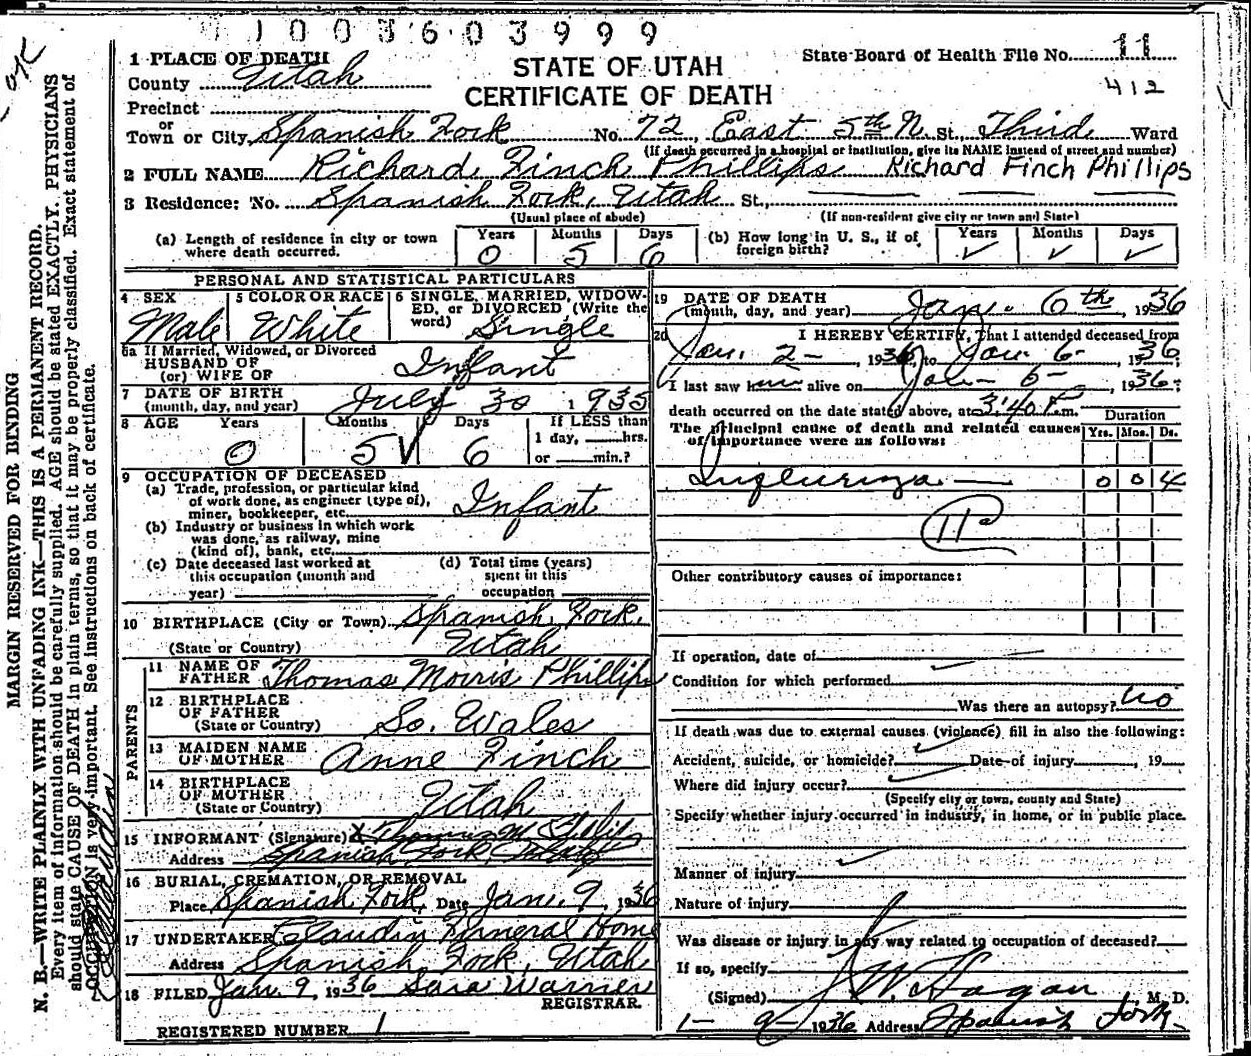 1003603999
1 PLACE OF DEATH
County Utah
STATE OF UTAH
CERTIFICATE OF DEATH
State Board of Health File No. 11
412
Precinct
or
Town or City Spanish Fork No. 72 East 5th N St., Third Ward
(If death occurred in a hospital or institution, give its NAME instead of street and number)
2 FULL NAME Richard Finch Phillips Richard Finch Phillips
3 Residence: No. Spanish Fork, Utah St.,
(Usual place of abode) (If non-resident give city or town and State)
(a) Length of residence in city or town where death occurred. Years 0 Months 5 Days 6 (b) How long in U. S., if of foreign birth? Years ✓ Months ✓ Days ✓
PERSONAL AND STATISTICAL PARTICULARS
4 SEX Male
5 COLOR OR RACE White
6 SINGLE, MARRIED, WIDOW-
ED, or DIVORCED (Write the
word) Single
6a If Married, Widowed, or Divorced
HUSBAND OF
(or) WIFE OF Infant
7 DATE OF BIRTH
(month, day, and year) July 30 1935
8 AGE Years 0 Months 5 ✓ Days 6 If LESS than
1 day, ___hrs.
or ___min.?
9 OCCUPATION OF DECEASED
(a) Trade, profession, or particular kind
of work done, as engineer (type of),
miner, bookkeeper, etc. Infant
(b) Industry or business in which work
was done, as railway, mine
(kind of), bank, etc.
(c) Date deceased last worked at
this occupation (month and
year)
(d) Total time (years)
spent in this
occupation
10 BIRTHPLACE (City or Town) Spanish Fork.
(State or Country) Utah
PARENTS
11 NAME OF
FATHER Thomas Morris Phillips
12 BIRTHPLACE
OF FATHER
(State or Country) So. Wales
13 MAIDEN NAME
OF MOTHER Anne Finch
14 BIRTHPLACE
OF MOTHER
(State or Country) Utah
15 INFORMANT (Signature) X Thomas M Phillips
Address Spanish Fork, Utah
16 BURIAL, CREMATION, OR REMOVAL
Place Spanish Fork, Date Jan. 9, 1936
17 UNDERTAKER Claudin Funeral Home
Address Spanish Fork, Utah
18 FILED Jan. 9, 1936 Sara Warner
REGISTRAR.
REGISTERED NUMBER 1
19 DATE OF DEATH
(month, day, and year) Jan. 6th, 1936
20 I HEREBY CERTIFY, That I attended deceased from
Jan. 2-, 1936, to Jan. 6-, 1936,
I last saw him alive on Jan- 6-, 1936;
death occurred on the date stated above, at 3:40 P.m.
The principal cause of death and related causes
of importance were as follows:
Duration
Yrs. Mos. Ds.
Influenza 0 0 4
11
Other contributory causes of importance:
If operation, date of
Condition for which performed
Was there an autopsy? No
If death was due to external causes (violence) fill in also the following:
Accident, suicide, or homicide? Date of injury, 19
Where did injury occur?
(Specify city or town, county and State)
Specify whether injury occurred in industry, in home, or in public place.
Manner of injury
Nature of injury
Was disease or injury in any way related to occupation of deceased?
If so, specify
(Signed) J. W. Hagan, M. D.
1-9-1936 Address Spanish Fork-
MARGIN RESERVED FOR BINDING
N. B.—WRITE PLAINLY WITH UNFADING INK—THIS IS A PERMANENT RECORD.
Every item of information should be carefully supplied. AGE should be stated EXACTLY. PHYSICIANS
should state CAUSE OF DEATH in plain terms, so that it may be properly classified. Exact statement of
OCCUPATION is very important. See instructions on back of certificate.
OK